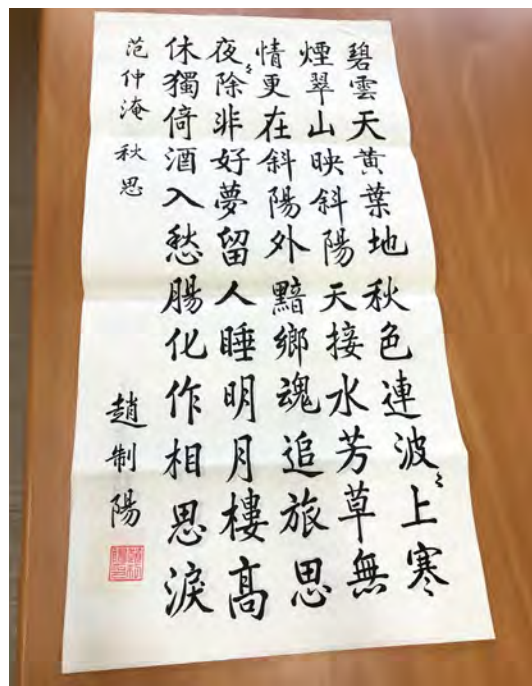 碧雲天黄葉地秋色連波〻上寒
煙翠山映斜陽天接水芳草無
情更在斜陽外黯鄉魂追旅思
夜〻除非好夢留人睡明月樓髙
休獨倚酒入愁腸化作相思淚
范仲淹 秋思
趙制陽